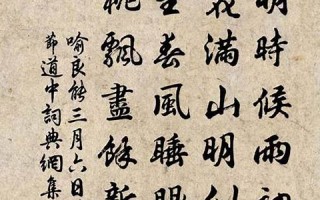 明時候雨初
花滿山明似
春風睡眼
桃飄盡餘新
喻良能三月六日
節道中詞典網集